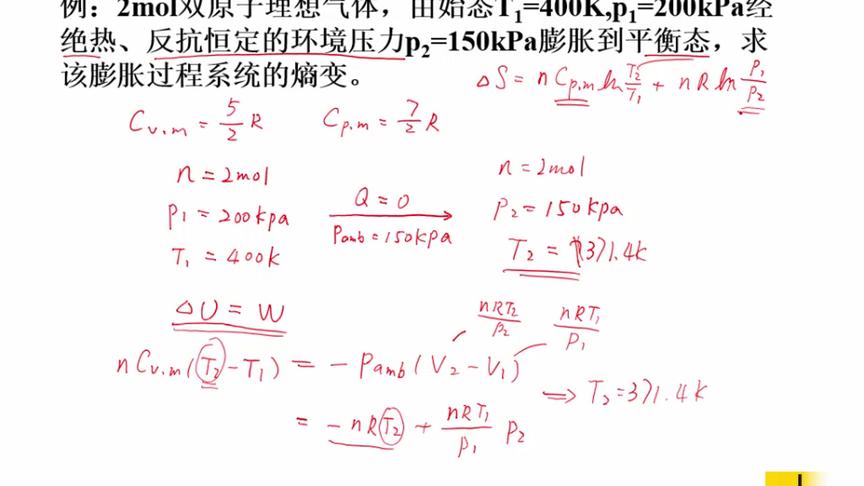 例：2mol双原子理想气体，由始态T₁=400K,p₁=200kPa经
绝热、反抗恒定的环境压力p₂=150kPa膨胀到平衡态，求
该膨胀过程系统的熵变。
ΔS = n Cp.m ln T₂/T₁ + nR ln P₁/P₂
Cv.m = 5/2 R
Cp.m = 7/2 R
n = 2mol
P₁ = 200kpa
T₁ = 400k
Q = 0
Pamb = 150kPa
n = 2mol
P₂ = 150kpa
T₂ = 371.4k
ΔU = W
nRT₂/P₂
nRT₁/P₁
nCv.m(T₂-T₁) = - Pamb(V₂-V₁)
⇒ T₂=371.4k
= -nRT₂ + nRT₁/P₁ P₂